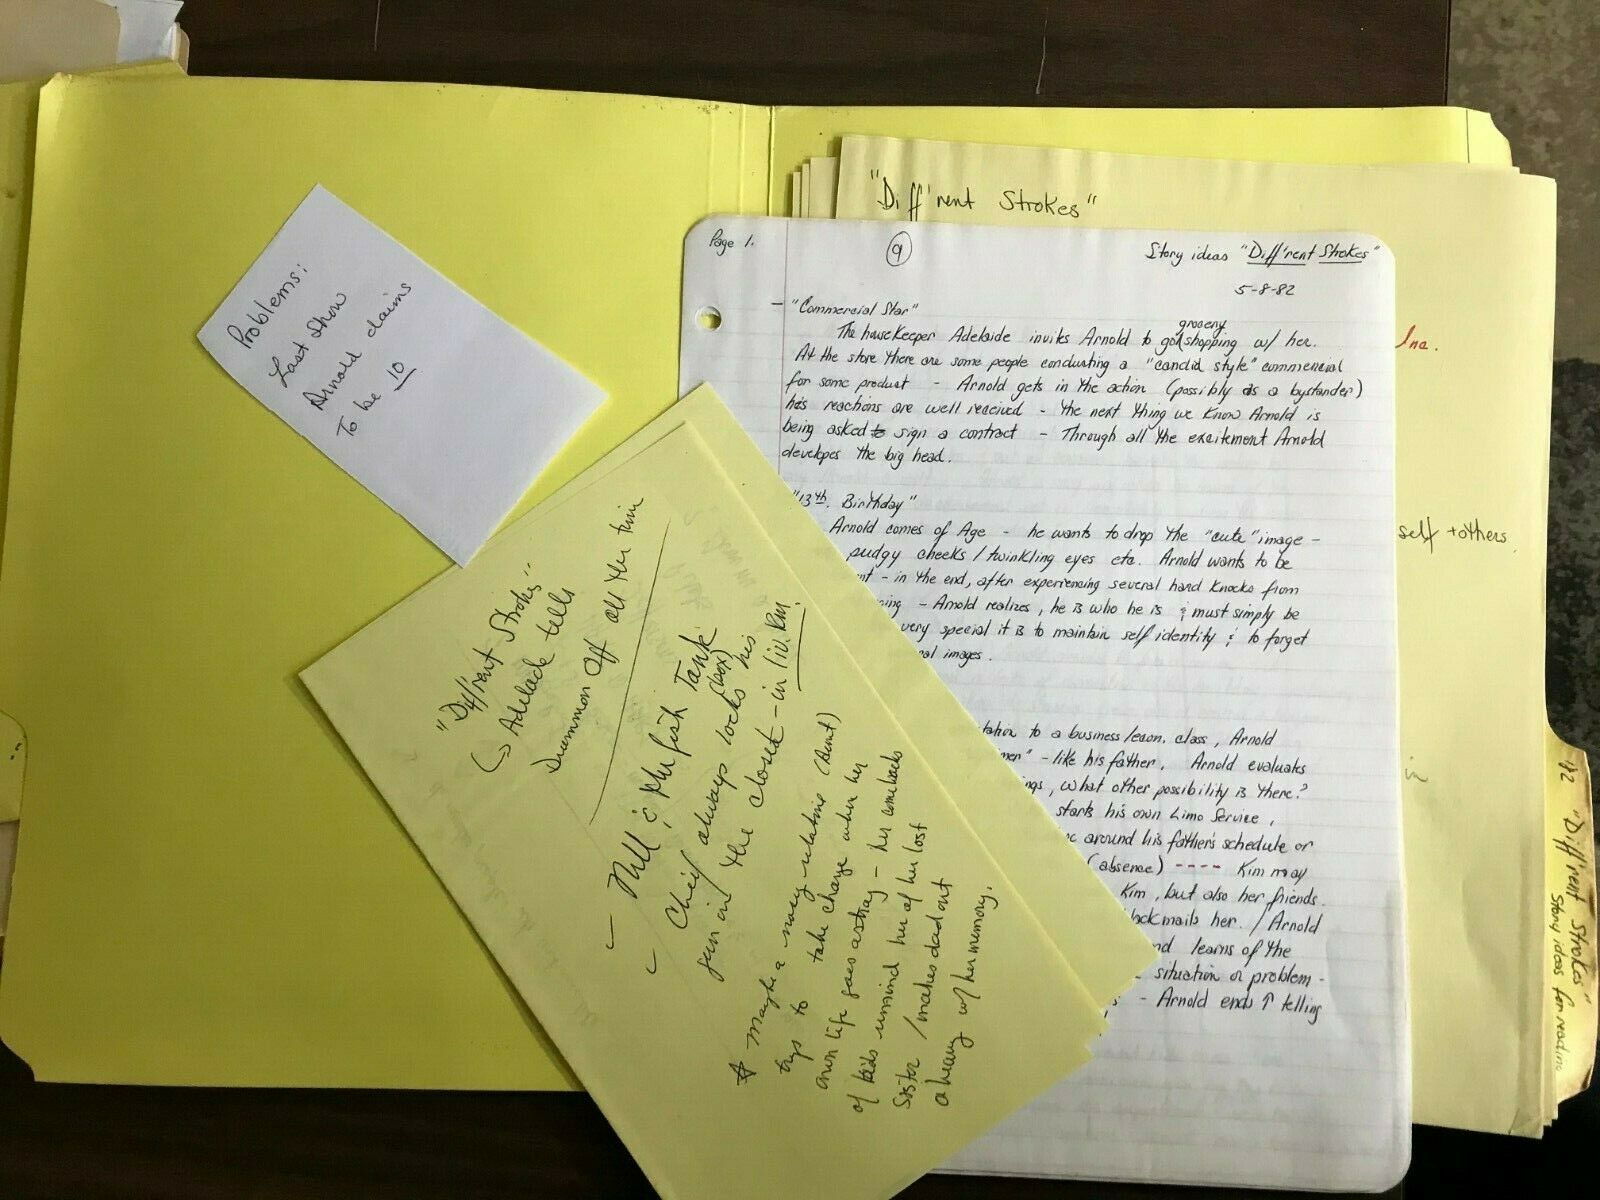 Problems:
Last show
Arnold claims
To be 10
"Diff'rent Strokes"
Inc.
self + others.
Page 1.
9
Story ideas "Diff'rent Strokes"
5-8-82
- "Commercial Star"
The housekeeper Adelaide invites Arnold to go grocery shopping w/ her.
At the store there are some people conducting a "candid style" commercial
for some product - Arnold gets in the action (possibly as a bystander)
his reactions are well received - the next thing we know Arnold is
being asked to sign a contract - Through all the excitement Arnold
developes the big head.
"13th. Birthday"
Arnold comes of Age - he wants to drop the "cute" image -
pudgy cheeks / twinkling eyes etc. Arnold wants to be
nt - in the end, after experiencing several hard knocks from
ning - Arnold realizes, he is who he is & must simply be
very special it is to maintain self identity & to forget
al images.
tation to a business/econ. class, Arnold
ner" - like his father. Arnold evaluates
ngs, what other possibility is there?
starts his own Limo Service,
around his father's schedule or
(absence) ---- Kim may
Kim, but also her friends.
lackmails her. / Arnold
nd learns of the
situation or problem -
- Arnold ends ↑ telling
"Diff'rent Strokes"
↳ Adelade tells
Drummon off all the time
- Phil & the fish Tank
- Chief always locks his
gun (box) in the closet - in liv. Rm.
☆ Maybe a nosey relative (Aunt)
trys to take charge when her
own life goes astray - her comebacks
of kids remind her of her lost
sister / makes dad out
a heavy w/ her memory.
'82 "Diff'rent Strokes"
Story ideas for reading